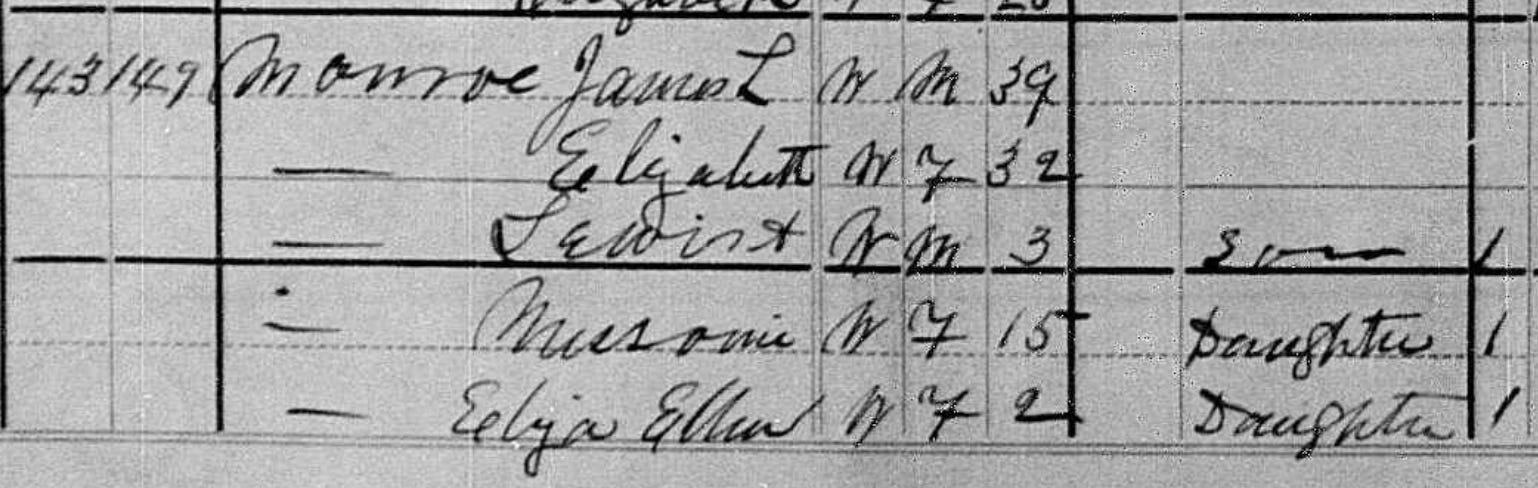 143 149 Monroe James L W M 39
— Elizabeth W F 32
— Lewis W M 3 Son 1
— W F 15 Daughter 1
— Eliza Ellen W F 2 Daughter 1